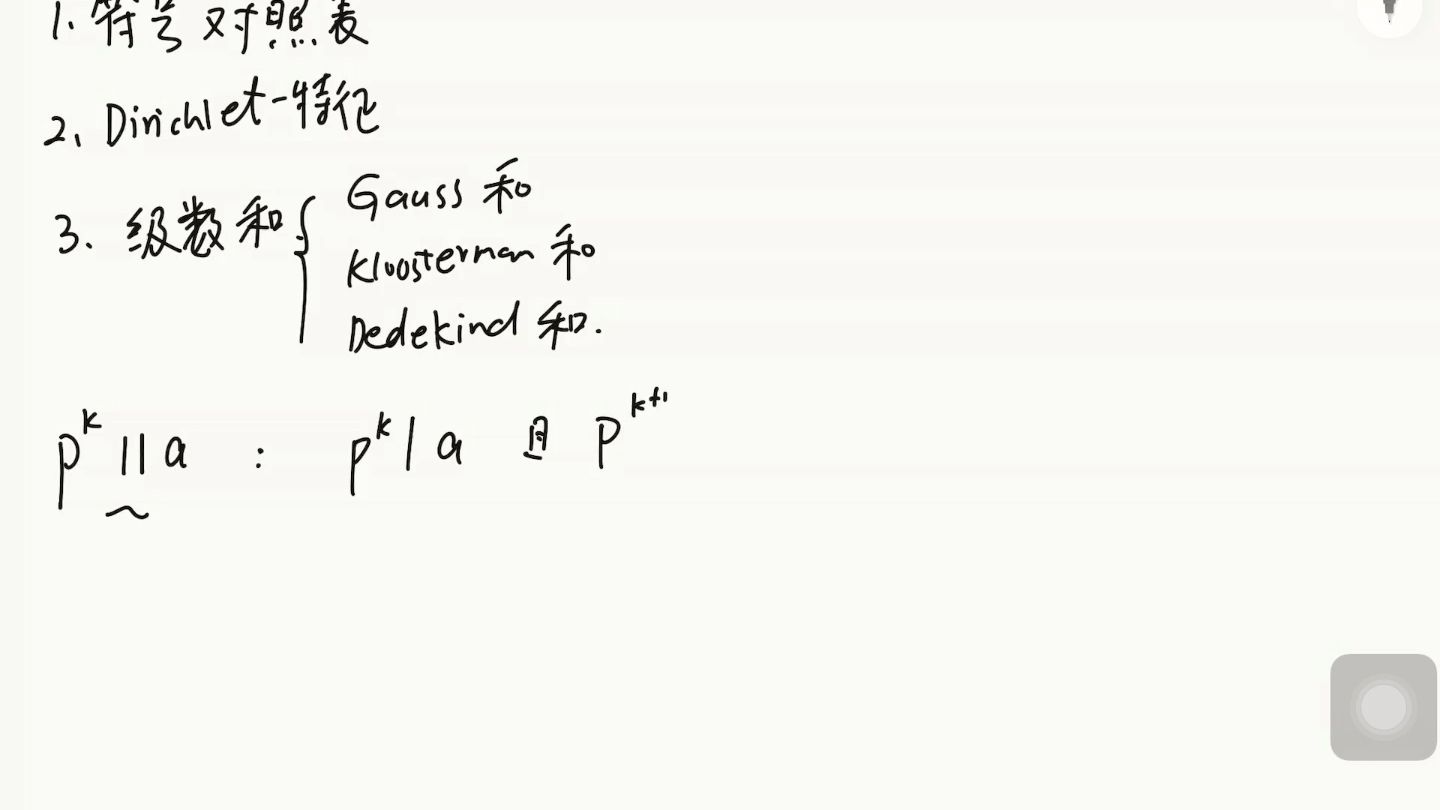 1. 符号对照表
2、Dirichlet-特征
3. 级数和 { Gauss 和
Kloosterman 和
Dedekind 和.
p^k || a : p^k | a 且 p^{k+1}